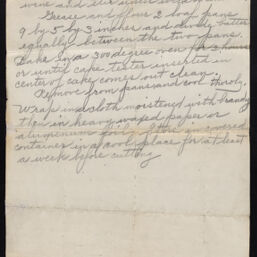 wine and
Grease and flour 2 loaf pans
9 by 5 by 3 inches and divide batter
equally between the two pans.
Bake in a 300 degree oven for 3 hours
or until cake tester inserted in
center of cake comes out clean.
Remove from pans and cool throly.
Wrap in cloth moistened with brandy
then in heavy waxed paper or
aluminum foil, store in covered
container in a cool place for at least
a week before cutting